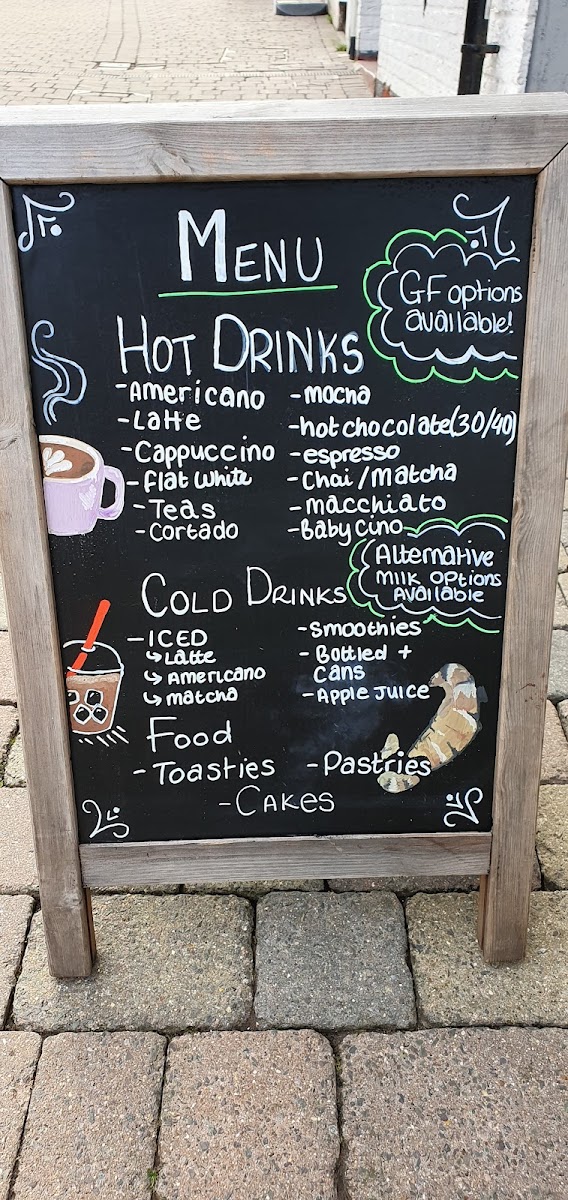 MENU
GF options
available!
HOT DRINKS
-Americano
-Latte
-Cappuccino
-flat white
-Teas
-Cortado
-mocha
-hot chocolate(30/40)
-espresso
-Chai/Matcha
-macchiato
-Babycino
Alternative
milk options
Available
COLD DRINKS
-ICED
↳Latte
↳Americano
↳matcha
-Smoothies
-Bottled +
cans
-Apple Juice
Food
-Toasties
-Pastries
-Cakes